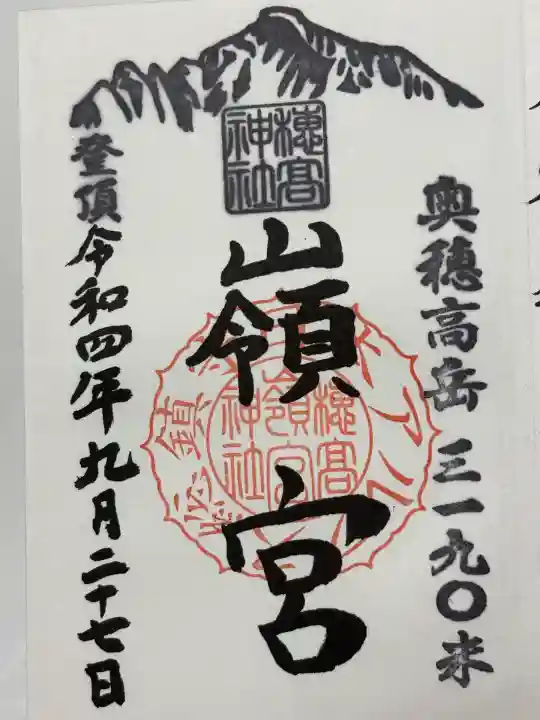 奥穂高岳 三一九〇米
穂高
神社
嶺宮
穂高
嶺宮
神社
登頂令和四年九月二十七日